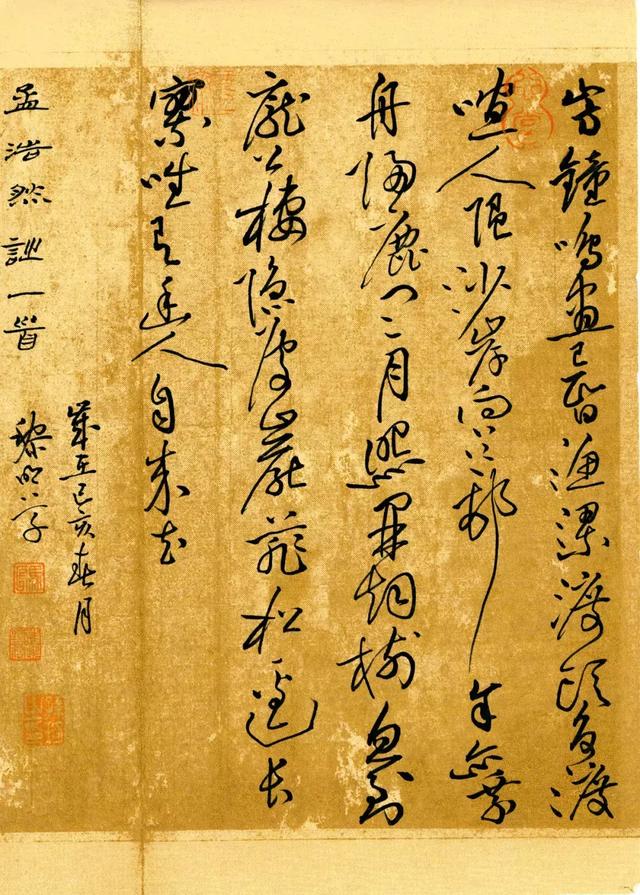 山寺鐘鳴晝已昏漁梁渡頭爭渡
喧人隨沙岸向江村余亦乘
舟歸鹿門〻月照開煙樹忽到
龐公棲隱處巖扉松徑長
寥唯有幽人自来去
歲在己亥春月
孟浩然詩一首